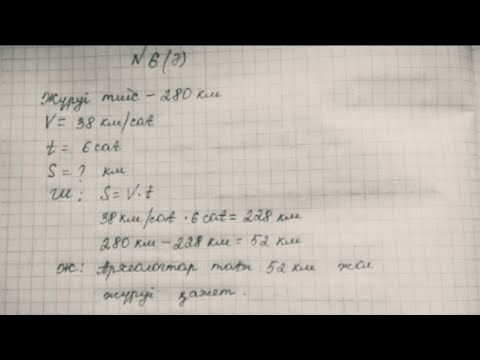 № 6 (3)
Жүруі тиіс – 280 км
V = 38 км/сағ
t = 6 сағ
S = ? км
Ш: S = V · t
38 км/сағ · 6 сағ = 228 км
280 км – 228 км = 52 км
Ж: Археологтар тағы 52 км жол
жүруі қажет.